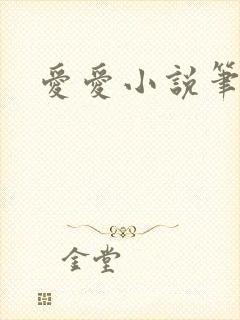 愛愛小説筆
金堂